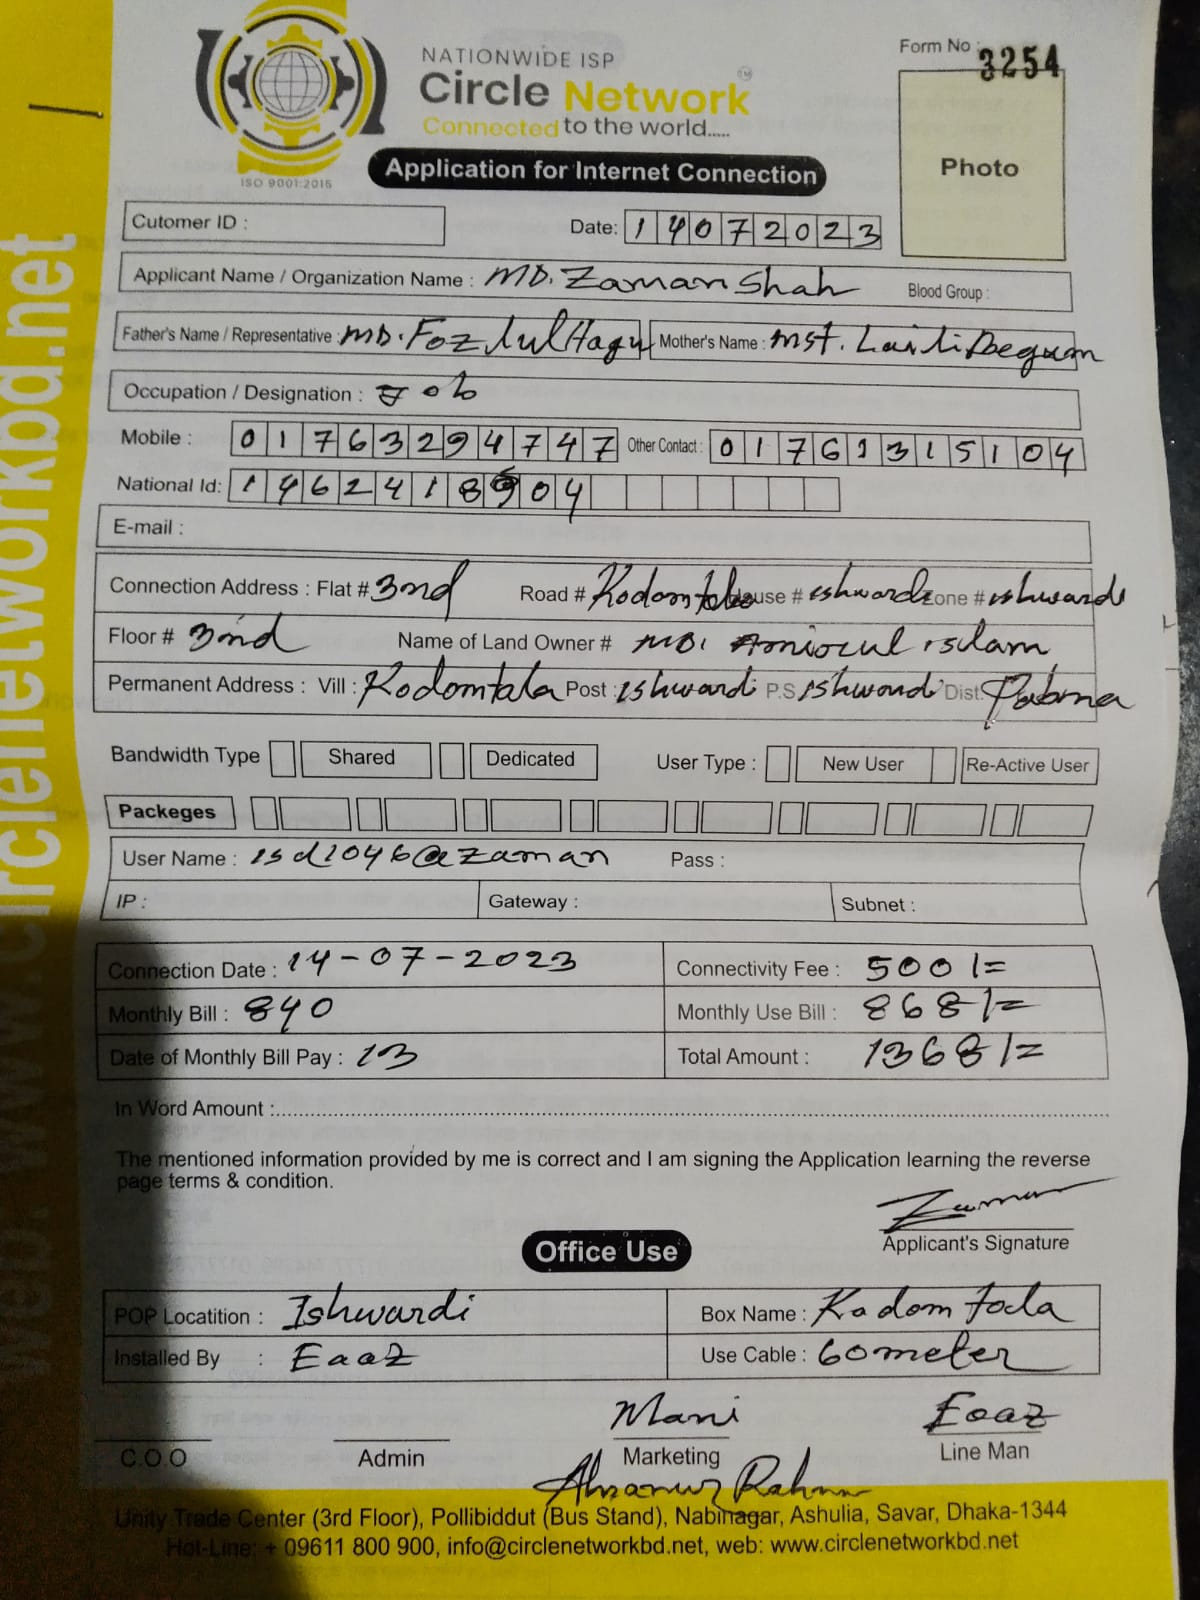 NATIONWIDE ISP
Circle Network TM
Connected to the world.....
ISO 9001:2015
Form No : 3254
Photo
Application for Internet Connection
Cutomer ID :
Date: 14072023
Applicant Name / Organization Name : MD. Zaman Shah Blood Group :
Father's Name / Representative : MD. Fozlul Haqu Mother's Name : Mst. Laili Begum
Occupation / Designation : Job
Mobile : 01763294747 Other Contact : 01761315104
National Id: 1462418904
E-mail :
Connection Address : Flat # 3nd Road # Kodomtala House # eshwardi Zone # ishwardi
Floor # 3nd Name of Land Owner # MD. Amiorul islam
Permanent Address : Vill : Kodomtala Post : Ishwardi P.S Ishwordi Dist. Pabna
Bandwidth Type Shared Dedicated User Type : New User Re-Active User
Packeges
User Name : isd1046@zaman Pass :
IP : Gateway : Subnet :
Connection Date : 14-07-2023 Connectivity Fee : 500/=
Monthly Bill : 840 Monthly Use Bill : 868/=
Date of Monthly Bill Pay : 13 Total Amount : 1368/=
In Word Amount :
The mentioned information provided by me is correct and I am signing the Application learning the reverse
page terms & condition.
Zaman
Applicant's Signature
Office Use
POP Locatition : Ishwardi Box Name : Kadom tola
Installed By : Eaaz Use Cable : 60 meter
Mani Eaaz
C.O.O Admin Marketing Line Man
Ahsanur Rahman
Unity Trade Center (3rd Floor), Pollibiddut (Bus Stand), Nabinagar, Ashulia, Savar, Dhaka-1344
Hot-Line: + 09611 800 900, info@circlenetworkbd.net, web: www.circlenetworkbd.net
web: www.circlenetworkbd.net